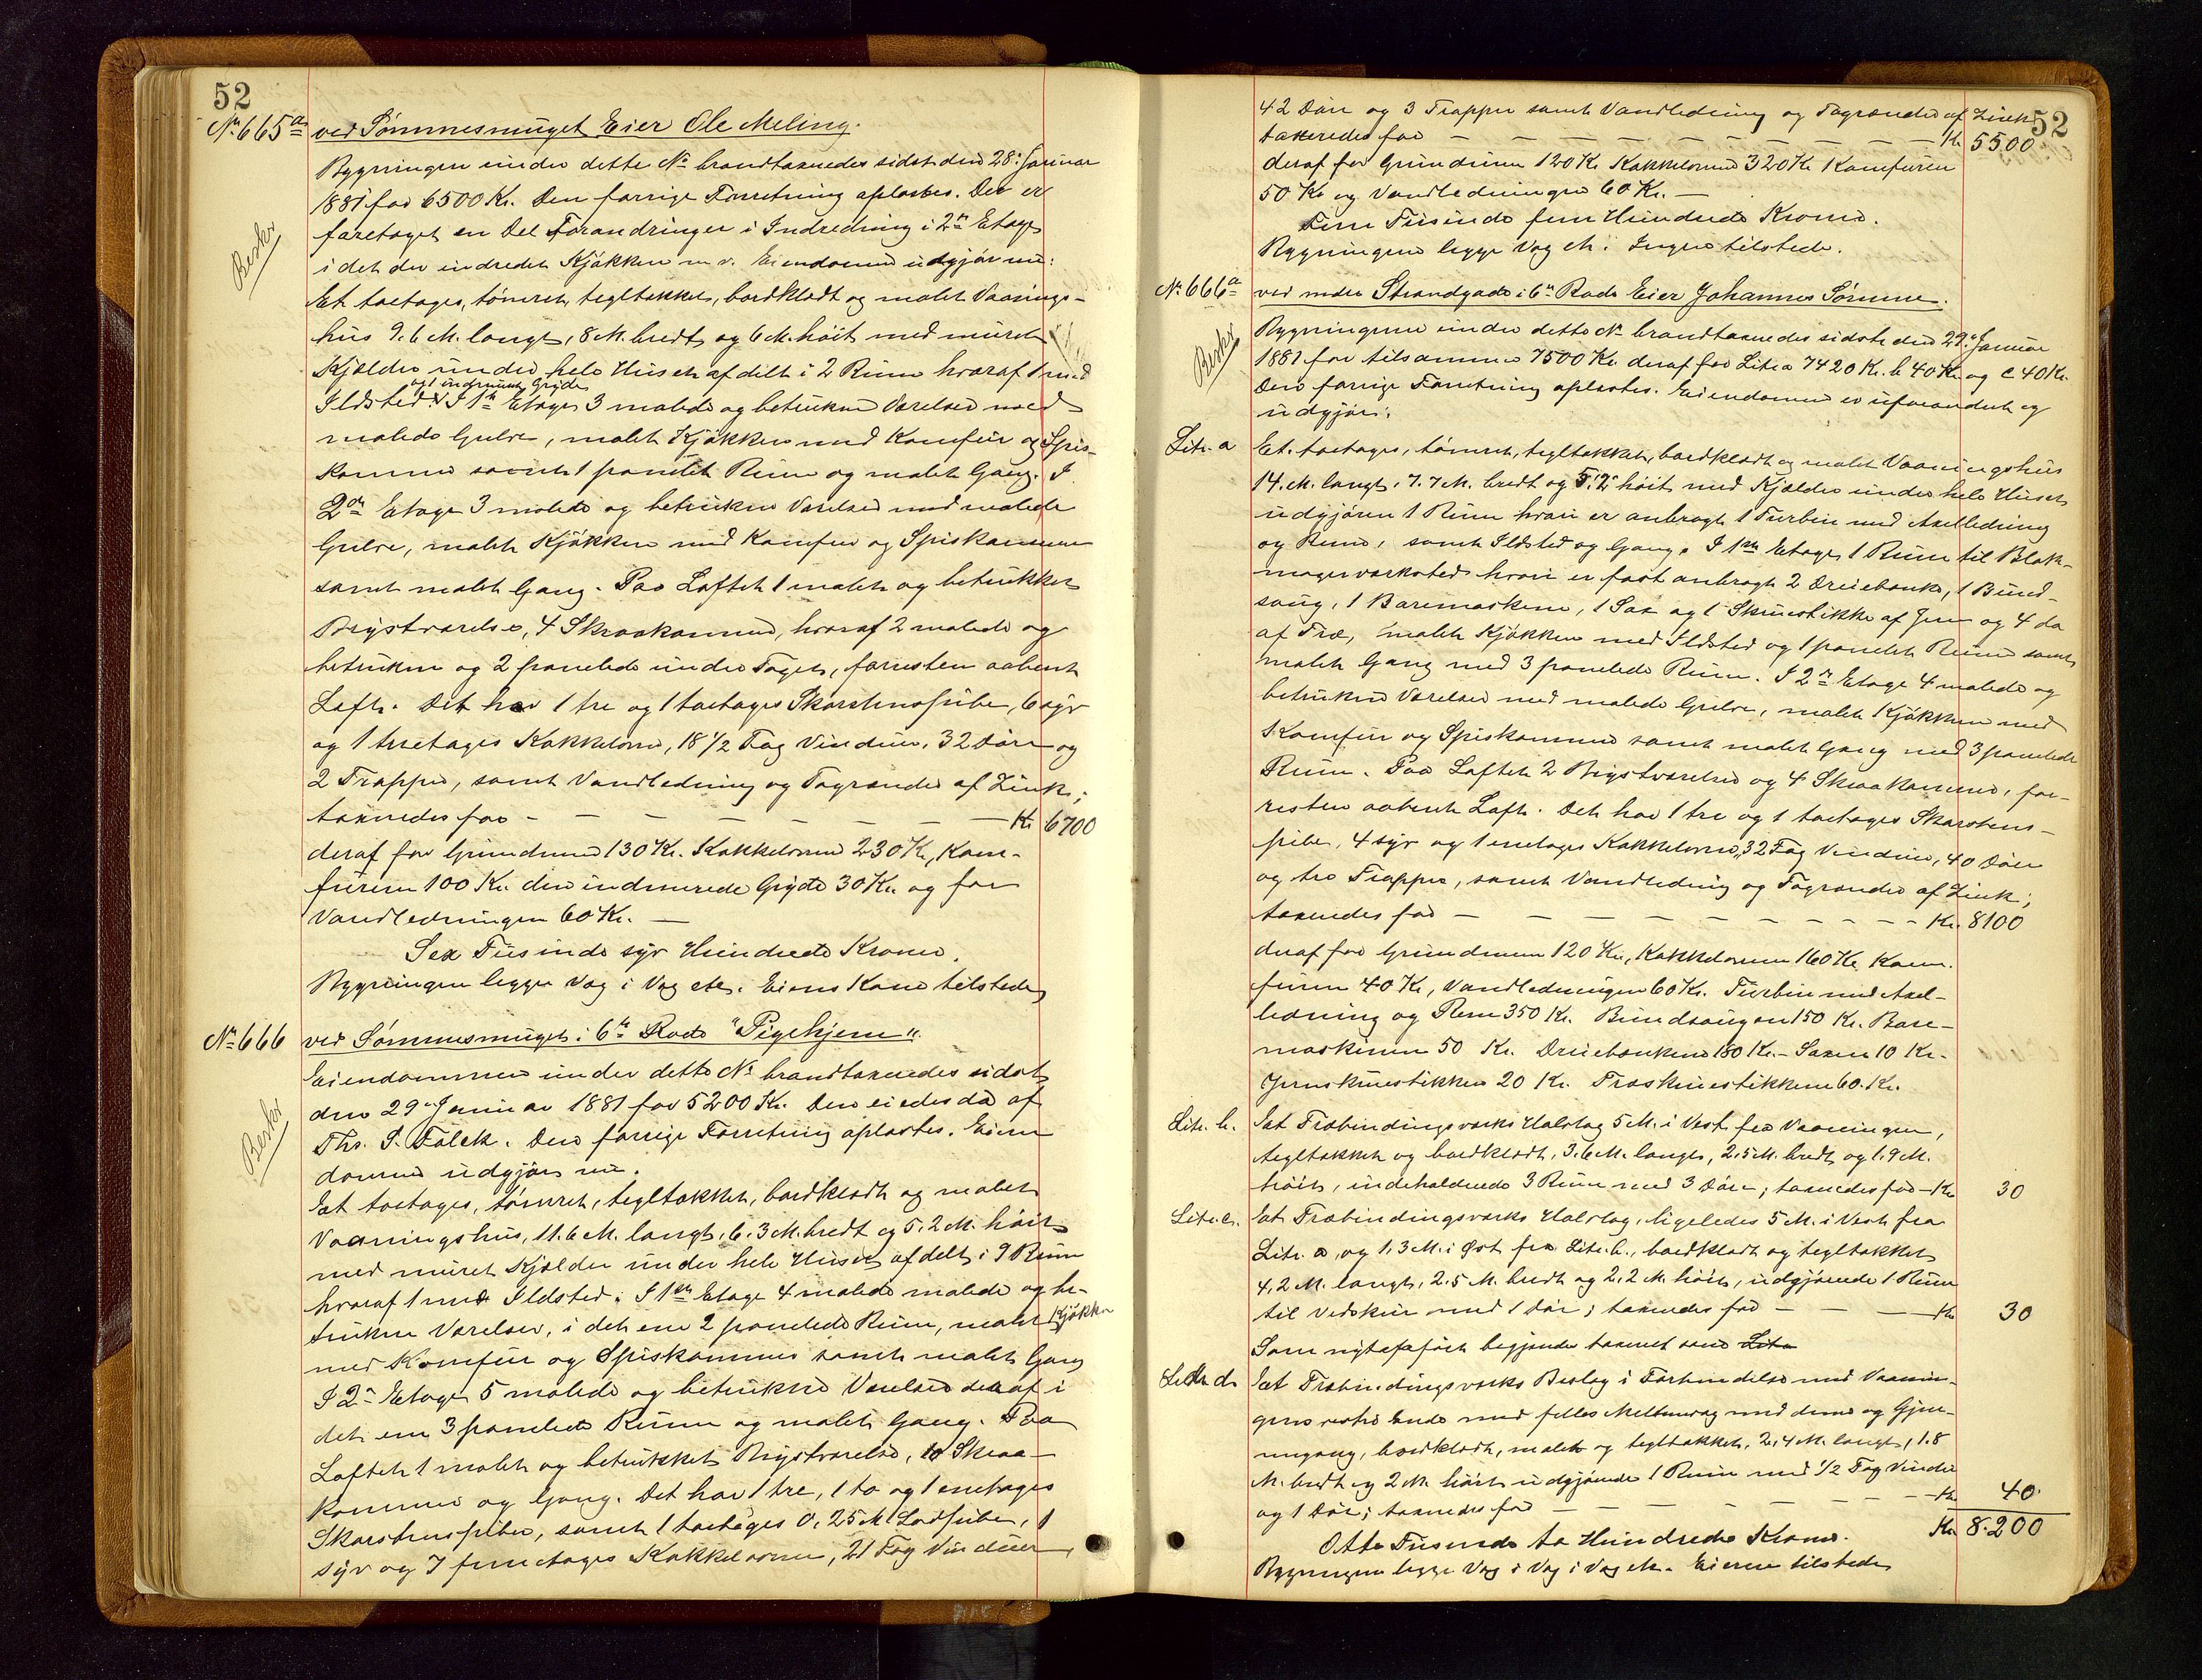 52
No 665a ved Sømmesmuget Eier Ole Meling.
Bygningen under dette No brandtaxeredes sidst den 28: Januar
1881 for 6500 Kr. Den forrige Forretning oplæstes. Der er
foretaget en Del Forandringer i Indredning i 2den Etage
Besker
i det der indredet Kjøkken m. v. Eiendommen udgjør nu:
Et toetages, tømret, tegltækket, bordklædt og malet Vaanings-
hus 9.6 M. langt, 8 M. bredt og 6 M. høit med muret
Kjælder under hele Huset afdelt i 2 Rum hvoraf 1 med
og 1 indmuret Gryde
Ildsted. I 1ste Etage 3 malede og betrukne Værelser med
malede Gulve, malet Kjøkken med Komfur og Spis-
kammer samt 1 panelet Rum og malet Gang. I
2den Etage 3 malede og betrukne Værelser med malede
Gulve, malet Kjøkken med Komfur og Spiskammer
samt malet Gang. Paa Loftet 1 malet og betrukket
Brystværelse, 4 Skraakammer, hvoraf 2 malede og
betrukne og 2 panelede under Taget, forresten aabent
Loft. Det har 1 tre og 1 toetages Skorstenspibe, 6 syv
og 1 treetages Kakkelovne, 18 1/2 Fag Vinduer, 32 Døre og
2 Trapper, samt Vandledning og Tagrender af Zink;
taxeredes for - - - - - - - Kr 6700
deraf for Grundmur 130 Kr. Kakkelovne 230 Kr, Kom-
furerne 100 Kr. den indmurede Gryde 30 Kr. og for
Vandledningen 60 Kr. —
Sex Tusinde syv Hundrede Kroner.
Bygningen ligger Væg i Væg etc. Eierens Kone tilstede
No 666 ved Sømmesmuget i 6te Rode "Pigehjem".
Eiendommen under dette No brandtaxeredes sidst
den 29. Januar 1881 for 5200 Kr. Den eiedes da af
Besker
Ths. S. Falck. Den forrige Forretning oplæstes. Eien-
dommen udgjør nu.
Et toetages, tømret, tegltækket, bordklædt og malet
Vaaningshus, 11.6 M. langt, 6.3 M. bredt og 5.2 M. høit
med muret Kjælder under hele Huset afdelt i 9 Rum
hvoraf 1 med Ildsted. I 1ste Etage 4 malede malede og be-
trukne Værelser, i det ene 2 panelede Rum, malet Kjøkken
med Komfur og Spiskammer samt malet Gang
I 2den Etage 5 malede og betrukne Værelser deraf i
det ene 3 panelede Rum og malet Gang. Paa
Loftet 1 malet og betrukket Brystværelse, 10 Skraa-
kammer og Gang. Det har 1 tre, 1 to og 1 enetages
Skorstenspiber, samt 1 toetages 0,25 M Lodpibe, 1
syv og 7 femetages Kakkelovne, 21 Fag Vinduer,
52
42 Døre og 3 Trapper samt Vandledning og Tagrender af Zink
taxeredes for — — — — — — — Kr 5500
deraf for Grundmur 120 Kr. Kakkelovne 320 Kr. Komfuren
50 Kr og Vandledningen 60 Kr. —
Fem Tusinde fem Hundrede Kroner.
Bygningen ligger Væg etc. Ingen tilstede.
No 666a ved nedre Strandgade i 6te Rode Eier Johannes Sømme.
Besker
Bygningerne under dette No brandtaxeredes sidst den 29. Januar
1881 for tilsammen 7500 Kr. deraf for Litr a 7420 Kr. b 40 Kr og c 40 Kr.
Den forrige Forretning oplæstes. Eiendommen er uforandret og
udgjør:
Litr. a Et toetages, tømret, tegltækket, bordklædt og malet Vaaningshus
14. M. langt, 7.7 M. bredt og 5.2 høit med Kjælder under hele Huset
udgjøren 1 Rum hvori er anbragt 1 Turbin med Axelledning
og Rem, samt Ildsted og Gang. I 1ste Etage 1 Rum til Blok-
magerværksted hvori er fast anbragt 2 Dreiebænke, 1 Bund-
saug, 1 Boremaskine, 1 Sax og 1 Skruestikke af Jern og 4 do
af Træ, malet Kjøkken med Ildsted og 1 panelet Rum samt
malet Gang med 3 panelede Rum. I 2den Etage 4 malede og
betrukne Værelser med malede Gulve, malet Kjøkken med
Komfur og Spiskammer samt malet Gang med 3 panelede
Rum. Paa Loftet 2 Brystværelser og 4 Skraakammer, for-
resten aabent Loft. Det har 1 tre og 1 toetages Skorstens-
piber, 4 syv og 1 enetages Kakkelovne, 32 Fag Vinduer, 40 Døre
og tre Trapper, samt Vandledning og Tagrender af Zink;
taxeredes for — — — — — — — Kr. 8100
deraf for Grundmuren 120 Kr., Kakkelovnene 160 Kr. Kom-
furen 40 Kr, Vandledningen 60 Kr. Turbin med Axel-
ledning og Rem 350 Kr. Bundsaugen 150 Kr. Bore-
maskinen 50 Kr. Dreiebænkene 180 Kr. - Saxen 10 Kr.
Jernskruestikken 20 Kr. Træskruestikkene 60. Kr.
Litr. b. Et Træbindingsværks Halvtag 5 M. i Vest fra Vaaningen,
tegltækket og bordklædt, 3.6 M. langt, 2.5 M. bredt og 1.9 M.
høit, indeholdende 3 Rum med 3 Døre; taxeredes for - Kr 30
Litr. c. Et Træbindingsværks Halvtag, ligeledes 5 M. i Vest fra
Litr. a, og 1,3 M. i Øst fra Litr. b., bordklædt og tegltækket
4,2 M. langt, 2.5 M. bredt og 2,2 M. høit, udgjørende 1 Rum
til Vedskur med 1 Dør; taxeredes for — — — Kr 30
Som nytopført begjæredes taxeret som Litr
Litr d. Et Træbindingsværks Bislag i Forbindelse med Vaanin-
gens vestre Ende med fælles Mellemvæg med denne og Gjen-
nemgang, bordklædt, malet og tegltækket, 2.4 M. langt, 1.8
M. bredt og 2 M. høit udgjørende 1 Rum med 1/2 Fag Vinduer
og 1 Dør; taxeredes for — — — — — Kr 40.
Otte Tusinde to Hundrede Kroner. Kr 8.200
Bygningen ligger Væg i Væg i Væg etc. Eieren tilstede